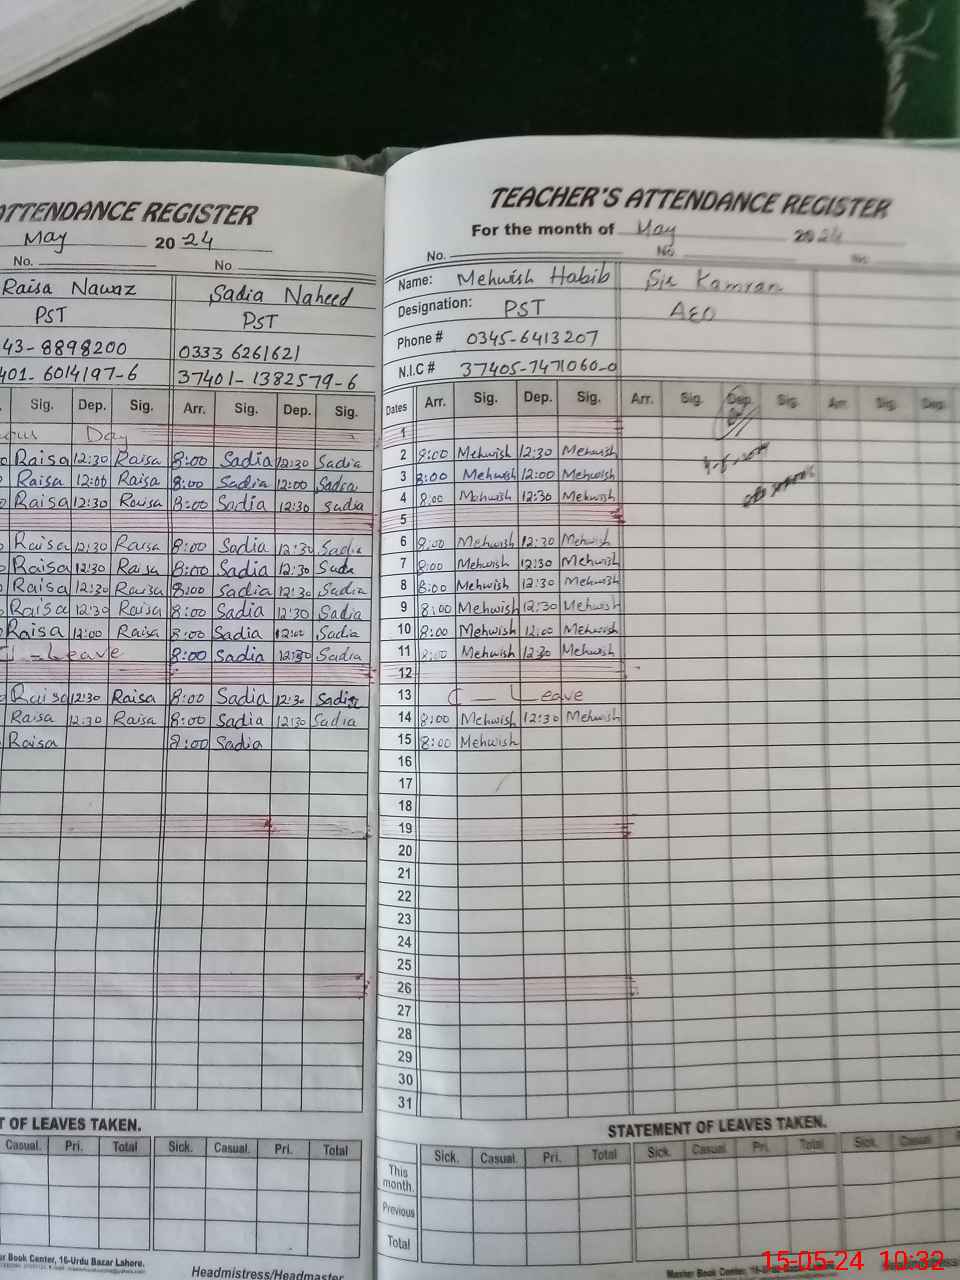 ATTENDANCE REGISTER
May 2024
No. No.
Raisa Nawaz Sadia Naheed
PST PST
43-8898200 0333 6261621
401-6014197-6 37401-1382579-6
Sig. Dep. Sig. Arr. Sig. Dep. Sig.
Day
Raisa 12:30 Raisa 8:00 Sadia 12:30 Sadia
Raisa 12:00 Raisa 8:00 Sadia 12:00 Sadia
Raisa 12:30 Raisa 8:00 Sadia 12:30 Sadia
Raisa 12:30 Raisa 8:00 Sadia 12:30 Sadia
Raisa 12:30 Raisa 8:00 Sadia 12:30 Sadia
Raisa 12:30 Raisa 8:00 Sadia 12:30 Sadia
Raisa 12:30 Raisa 8:00 Sadia 12:30 Sadia
Raisa 12:00 Raisa 8:00 Sadia 12:00 Sadia
Leave 8:00 Sadia 12:30 Sadia
Raisa 12:30 Raisa 8:00 Sadia 12:30 Sadia
Raisa 12:30 Raisa 8:00 Sadia 12:30 Sadia
Raisa 8:00 Sadia
T OF LEAVES TAKEN.
Casual. Pri. Total Sick. Casual. Pri. Total
er Book Center, 16-Urdu Bazar Lahore.
Headmistress/Headmaster
TEACHER'S ATTENDANCE REGISTER
For the month of May 2024
No. No. No.
Name: Mehwish Habib Sir Kamran
Designation: PST AEO
Phone # 0345-6413207
N.I.C # 37405-7471060-0
Dates Arr. Sig. Dep. Sig. Arr. Sig. Dep. Sig. Arr. Sig. Dep.
1
2 8:00 Mehwish 12:30 Mehwish
3 8:00 Mehwish 12:00 Mehwish
4 8:00 Mehwish 12:30 Mehwish
5
6 8:00 Mehwish 12:30 Mehwish
7 8:00 Mehwish 12:30 Mehwish
8 8:00 Mehwish 12:30 Mehwish
9 8:00 Mehwish 12:30 Mehwish
10 8:00 Mehwish 12:00 Mehwish
11 8:00 Mehwish 12:30 Mehwish
12
13 C — Leave
14 8:00 Mehwish 12:30 Mehwish
15 8:00 Mehwish
16
17
18
19
20
21
22
23
24
25
26
27
28
29
30
31
STATEMENT OF LEAVES TAKEN.
Sick. Casual. Pri. Total Sick. Casual. Pri. Total Sick. Casual
This month.
Previous
Total
Master Book Center, 16-
15-05-24 10:32